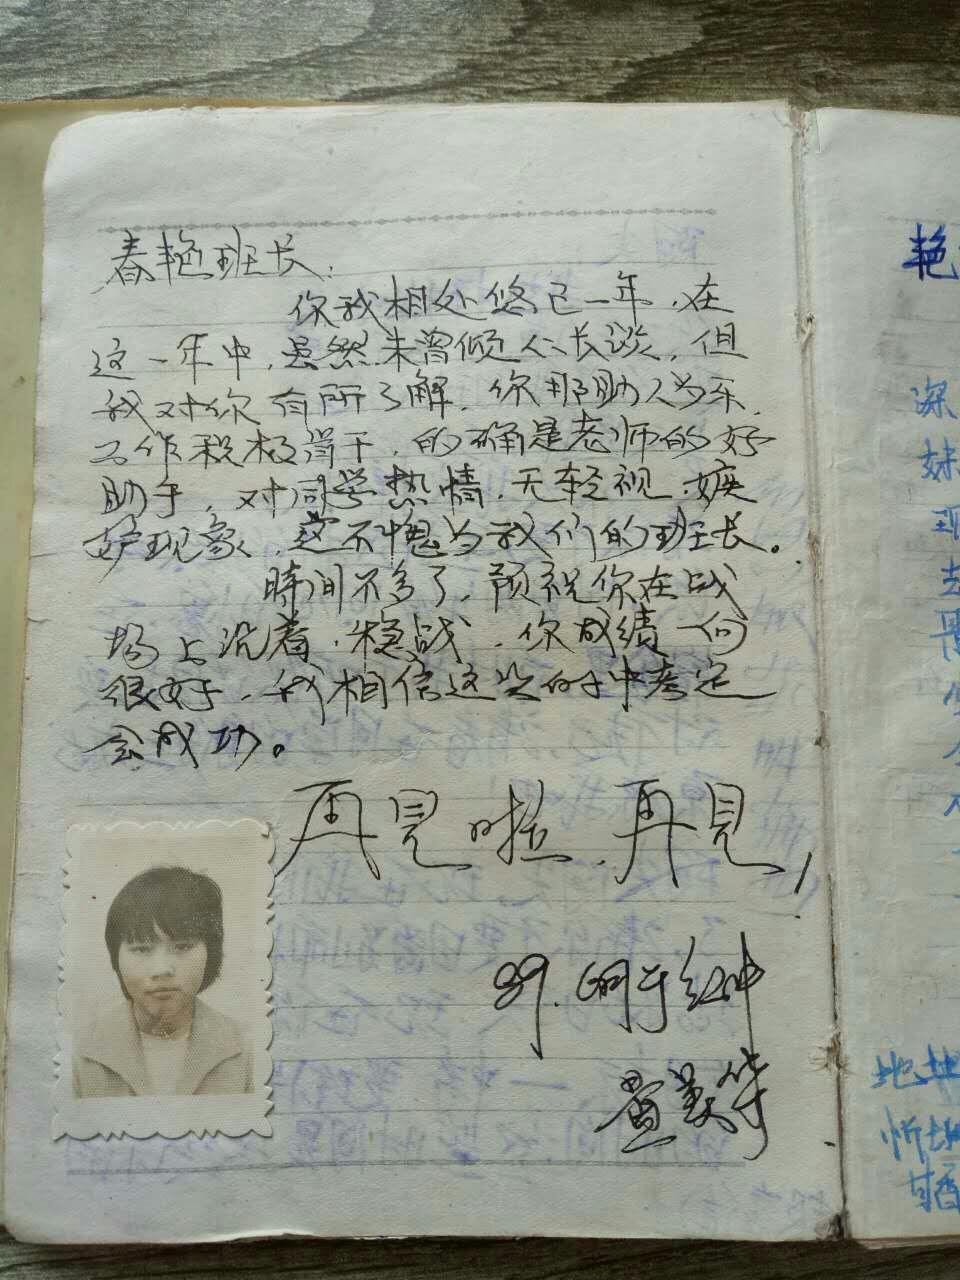 春艳班长:
你我相处悠已一年,在
这一年中,虽然未曾倾心长谈,但
我对你有所了解,你那助人为乐,
工作积极肯干,的确是老师的好
助手,对同学热情,无轻视、嫉
妒现象,这不愧为我们的班长。
時间不多了,预祝你在战
场上沉着、稳战,你成绩一向
很好,我相信这次的中考定
会成功。
再見啦,再見,
89.6月于红中
黄美华
艳
深
妹
地址
忻城